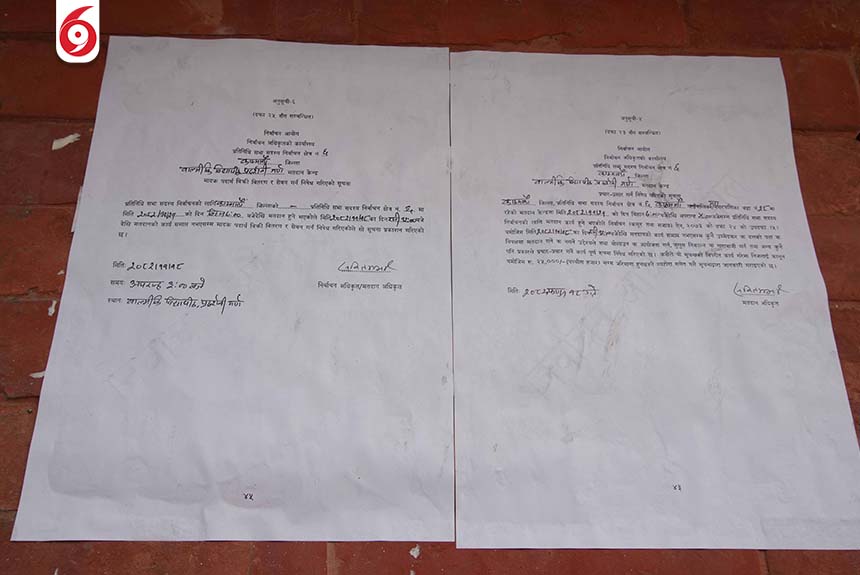 अनुसूची-६
(दफा २५ सँग सम्बन्धित)
निर्वाचन आयोग
निर्वाचन अधिकृतको कार्यालय
प्रतिनिधि सभा सदस्य निर्वाचन क्षेत्र नं. ५
काठमाडौं जिल्ला
वाल्मीकि विद्यापीठ, प्रदर्शनी मार्ग मतदान केन्द्र
मादक पदार्थ बिक्री वितरण र सेवन गर्न निषेध गरिएको सूचना
प्रतिनिधि सभा सदस्य निर्वाचनको लागि काठमाडौं जिल्लाको - प्रतिनिधि सभा सदस्य निर्वाचन क्षेत्र नं. ५ मा
मिति को दिन बजेदेखि मतदान हुने भएकोले का दिन बजे
देखि मतदानको कार्य समाप्त नभएसम्म मादक पदार्थ बिक्री वितरण र सेवन गर्न निषेध गरिएकोले सो सूचना प्रकाशन गरिएको
छ।
मिति: २०८२।११।१८
समय: अपरान्ह २:०० बजे
स्थान: वाल्मीकि विद्यापीठ, प्रदर्शनी मार्ग
निर्वाचन अधिकृत/मतदान अधिकृत
४५
अनुसूची-४
(दफा २३ सँग सम्बन्धित)
निर्वाचन आयोग
निर्वाचन अधिकृतको कार्यालय
प्रतिनिधि सभा सदस्य निर्वाचन क्षेत्र नं. ५
काठमाडौं जिल्ला
वाल्मीकि विद्यापीठ प्रदर्शनी मार्ग मतदान केन्द्र
प्रचार-प्रसार गर्न निषेध गरिएको सूचना
काठमाडौं जिल्ला, प्रतिनिधि सभा सदस्य निर्वाचन क्षेत्र नं. ५ काठमाडौं वडा नं. २८ मा
रहेको मतदान केन्द्रमा मिति को दिन बिहान बजेदेखि अपरान्ह बजेसम्म प्रतिनिधि सभा सदस्य
निर्वाचनको लागि मतदान कार्य हुने भएकोले निर्वाचन (कसूर तथा सजाय) ऐन, २०७३ को दफा २४ को उपदफा (१)
बमोजिम मिति का दिन बजेदेखि मतदानको कार्य समाप्त नभएसम्म कुनै उम्मेदवार वा दलको पक्ष वा
विपक्षमा मतदान गर्ने वा नगर्ने उद्देश्यले सभा सम्मेलन वा आयोजना गर्न, जुलुस निकाल्न वा नाराबाजी गर्न तथा अन्य कुनै
पनि प्रकारले प्रचार-प्रसार गर्ने कार्य पूर्ण रूपमा निषेध गरिएको छ। कसैले यो सूचनाको विपरीत कार्य गरेमा निजलाई कानून
बमोजिम रू. २५,०००/- (पच्चीस हजार) जरिवाना हुनसक्ने व्यहोरा समेत यसै सूचनाद्वारा जानकारी गराइएको छ।
मिति: २०८२ फागुन १८ गते
मतदान अधिकृत
४३